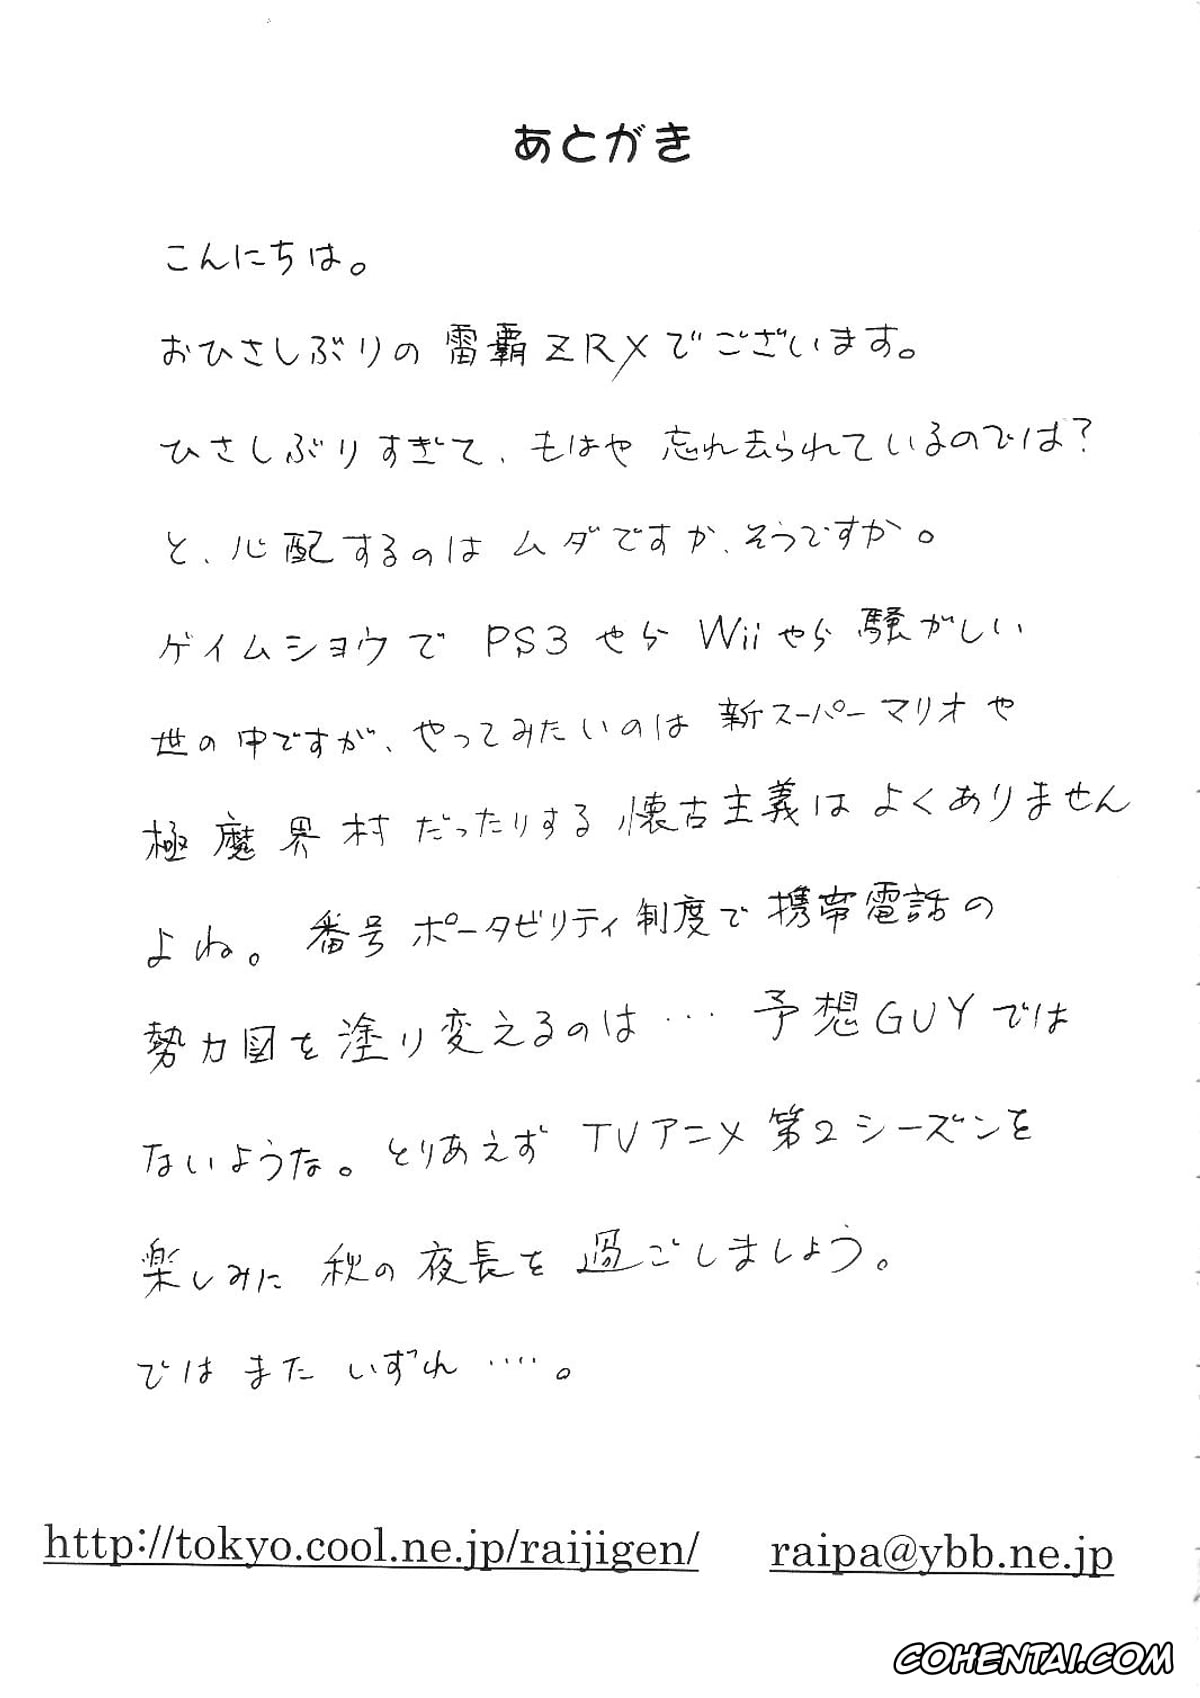 あとがき
こんにちは。
おひさしぶりの雷覇ZRXでございます。
ひさしぶりすぎて、もはや忘れ去られているのでは?
と、心配するのはムダですか、そうですか。
ゲイムショウでPS3やらWiiやら騒がしい
世の中ですが、やってみたいのは新スーパーマリオや
極魔界村だったりする懐古主義はよくありません
よね。番号ポータビリティ制度で携帯電話の
勢力図を塗り変えるのは…予想GUYでは
ないような。とりあえずTVアニメ第2シーズンを
楽しみに秋の夜長を過ごしましょう。
ではまたいずれ……。
http://tokyo.cool.ne.jp/raijigen/ raipa@ybb.ne.jp
COHENTAI.COM